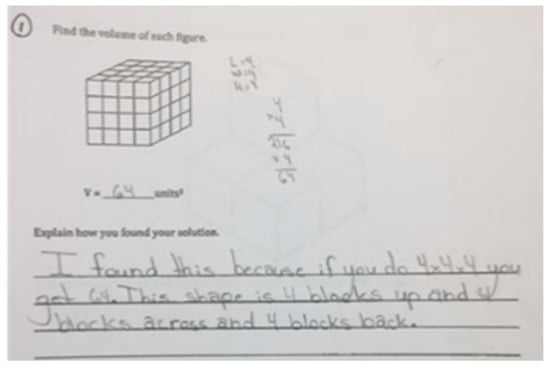 1
Find the volume of each figure.
L=4
W=4
H=4
4
x4
16
x4
64
V = 64 units³
Explain how you found your solution.
I found this because if you do 4x4x4 you
get 64. This shape is 4 blocks up and 4
blocks across and 4 blocks back.